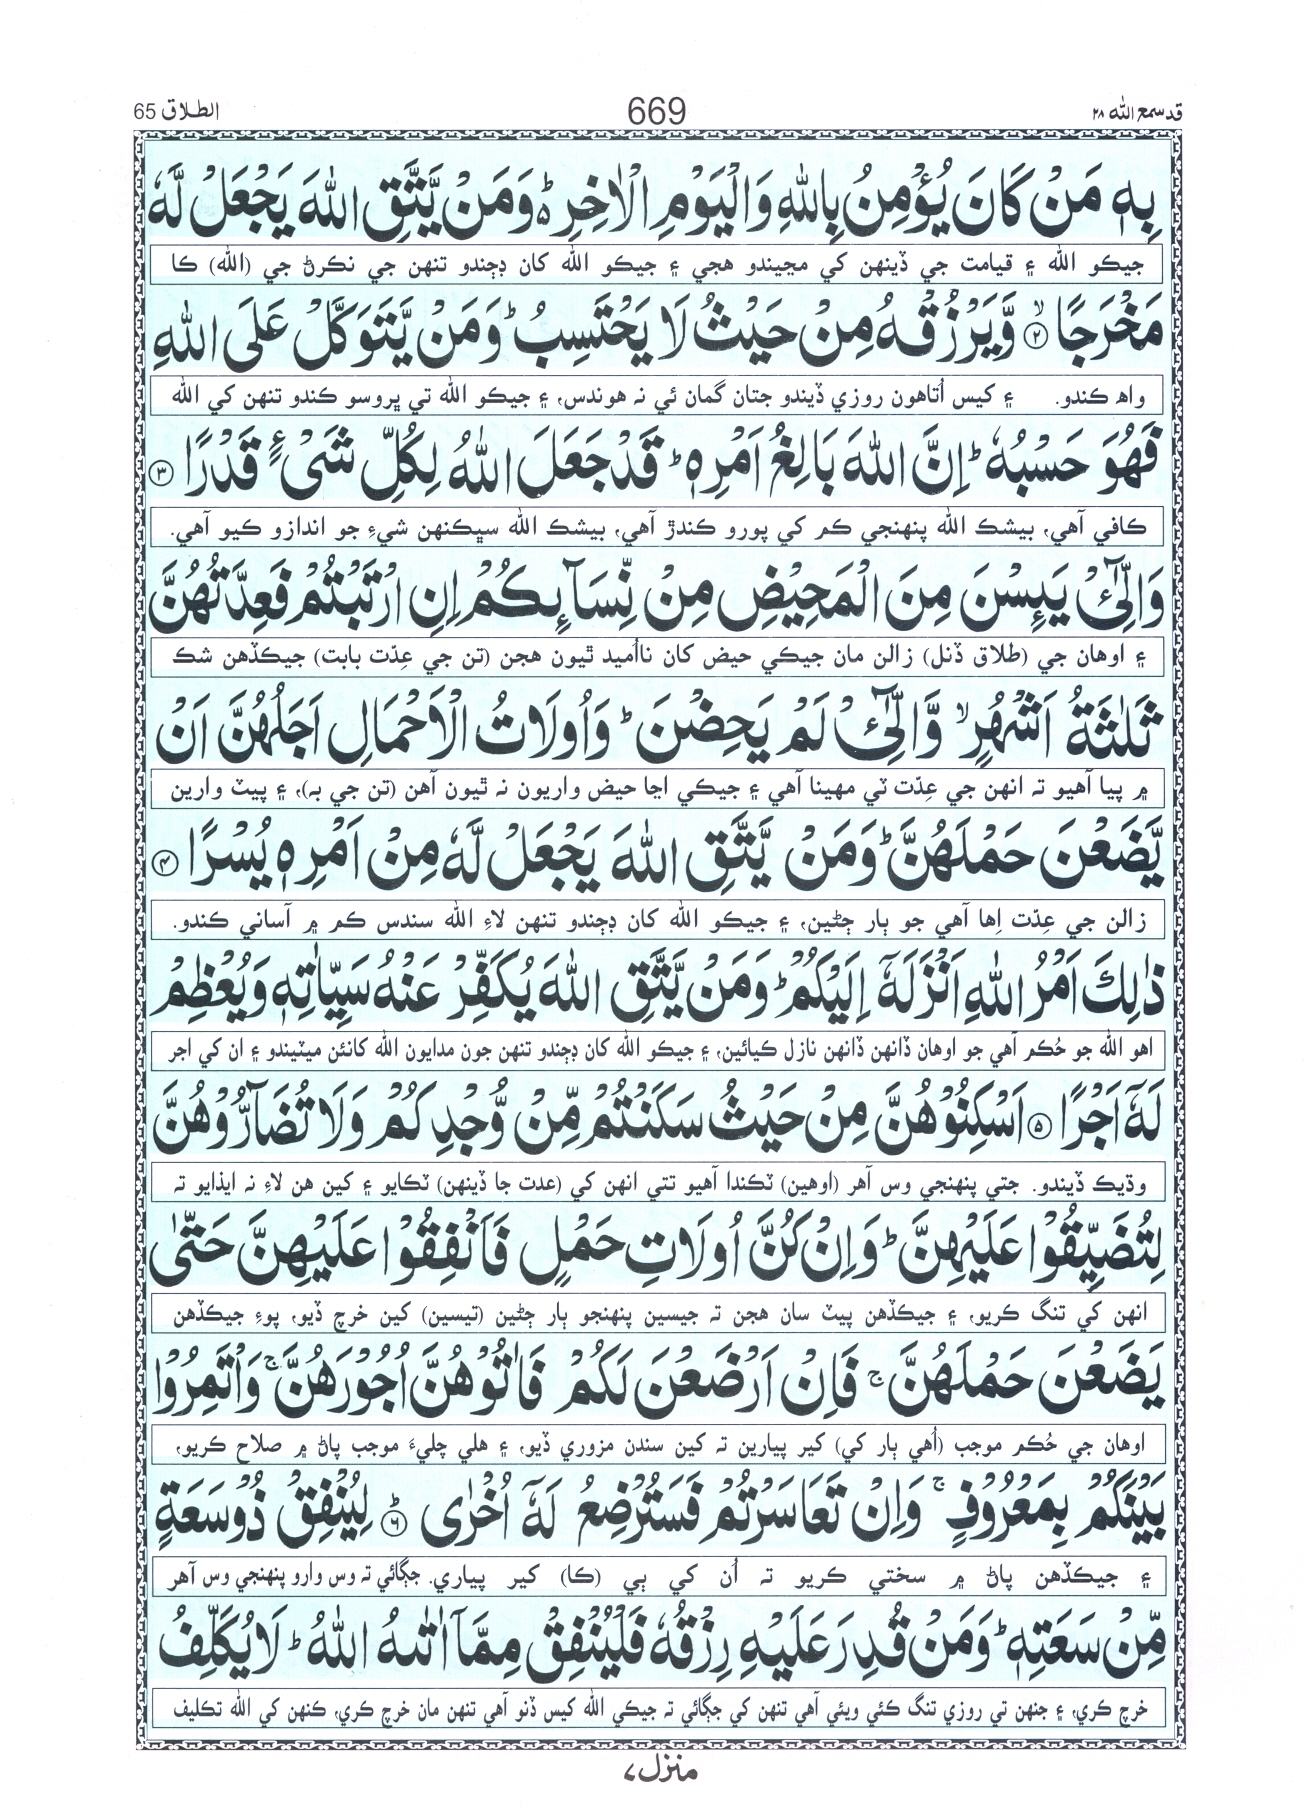 قد سمع الله ٢٨
669
الطلاق 65
بِهٖ مَنْ كَانَ يُؤْمِنُ بِاللّٰهِ وَالْيَوْمِ الْاٰخِرِ ؕ۬ وَمَنْ يَّتَّقِ اللّٰهَ يَجْعَلْ لَّهٗ
جيڪو الله ۽ قيامت جي ڏينهن کي مڃيندو هجي ۽ جيڪو الله کان ڊڄندو تنهن جي نڪرڻ جي (الله) ڪا
مَخْرَجًا ۙ﴿۲﴾ وَّيَرْزُقْهُ مِنْ حَيْثُ لَا يَحْتَسِبُ ؕ وَمَنْ يَّتَوَكَّلْ عَلَى اللّٰهِ
واھ ڪندو. ۽ کيس اُتاهون روزي ڏيندو جتان گمان ئي نہ هوندس، ۽ جيڪو الله تي ڀروسو ڪندو تنهن کي الله
فَهُوَ حَسْبُهٗ ؕ اِنَّ اللّٰهَ بَالِغُ اَمْرِهٖ ؕ قَدْ جَعَلَ اللّٰهُ لِكُلِّ شَیْءٍ قَدْرًا ﴿۳﴾
ڪافي آهي، بيشڪ الله پنهنجي ڪم کي پورو ڪندڙ آهي، بيشڪ الله سڀڪنهن شيءِ جو اندازو ڪيو آهي.
وَالّٰٓیِٔیْ يَىِٕسْنَ مِنَ الْمَحِيْضِ مِنْ نِّسَآىِٕكُمْ اِنِ ارْتَبْتُمْ فَعِدَّتُهُنَّ
۽ اوهان جي (طلاق ڏنل) زالن مان جيڪي حيض کان نااُميد ٿيون هجن (تن جي عِدّت بابت) جيڪڏهن شڪ
ثَلٰثَةُ اَشْهُرٍ ۙ وَّالّٰٓیِٔیْ لَمْ يَحِضْنَ ؕ وَاُولَاتُ الْاَحْمَالِ اَجَلُهُنَّ اَنْ
۾ پيا آهيو تہ انهن جي عِدّت ٽي مهينا آهي ۽ جيڪي اڃا حيض واريون نہ ٿيون آهن (تن جي بہ)، ۽ پيٽ وارين
يَّضَعْنَ حَمْلَهُنَّ ؕ وَمَنْ يَّتَّقِ اللّٰهَ يَجْعَلْ لَّهٗ مِنْ اَمْرِهٖ يُسْرًا ﴿۴﴾
زالن جي عِدّت اِها آهي جو ٻار ڄڻين، ۽ جيڪو الله کان ڊڄندو تنهن لاءِ الله سندس ڪم ۾ آساني ڪندو.
ذٰلِكَ اَمْرُ اللّٰهِ اَنْزَلَهٗٓ اِلَيْكُمْ ؕ وَمَنْ يَّتَّقِ اللّٰهَ يُكَفِّرْ عَنْهُ سَيِّاٰتِهٖ وَيُعْظِمْ
اهو الله جو حُڪم آهي جو اوهان ڏانهن ڏانهن نازل ڪيائين، ۽ جيڪو الله کان ڊڄندو تنهن جون مدايون الله کانئن ميٽيندو ۽ ان کي اجر
لَهٗٓ اَجْرًا ﴿۵﴾ اَسْكِنُوْهُنَّ مِنْ حَيْثُ سَكَنْتُمْ مِّنْ وُّجْدِكُمْ وَلَا تُضَآرُّوْهُنَّ
وڌيڪ ڏيندو. جتي پنهنجي وس آهر (اوهين) ٽڪندا آهيو تتي انهن کي (عدت جا ڏينهن) ٽڪايو ۽ کين هن لاءِ نہ ايذايو تہ
لِتُضَيِّقُوْا عَلَيْهِنَّ ؕ وَاِنْ كُنَّ اُولَاتِ حَمْلٍ فَاَنْفِقُوْا عَلَيْهِنَّ حَتّٰى
انهن کي تنگ ڪريو، ۽ جيڪڏهن پيٽ سان هجن تہ جيسين پنهنجو ٻار ڄڻين (تيسين) کين خرچ ڏيو، پوءِ جيڪڏهن
يَضَعْنَ حَمْلَهُنَّ ۚ فَاِنْ اَرْضَعْنَ لَكُمْ فَاٰتُوْهُنَّ اُجُوْرَهُنَّ ۚ وَاْتَمِرُوْا
اوهان جي حُڪم موجب (اُهي ٻار کي) کير پيارين تہ کين سندن مزوري ڏيو، ۽ هلي چليءَ موجب پاڻ ۾ صلاح ڪريو،
بَيْنَكُمْ بِمَعْرُوْفٍ ۚ وَاِنْ تَعَاسَرْتُمْ فَسَتُرْضِعُ لَهٗٓ اُخْرٰى ﴿۶﴾ؕ لِيُنْفِقْ ذُوْ سَعَةٍ
۽ جيڪڏهن پاڻ ۾ سختي ڪريو تہ اُن کي ٻي (ڪا) کير پياري. جڳائي تہ وس وارو پنهنجي وس آهر
مِّنْ سَعَتِهٖ ؕ وَمَنْ قُدِرَ عَلَيْهِ رِزْقُهٗ فَلْيُنْفِقْ مِمَّآ اٰتٰىهُ اللّٰهُ ؕ لَا يُكَلِّفُ
خرچ ڪري، ۽ جنهن تي روزي تنگ ڪئي ويئي آهي تنهن کي جڳائي تہ جيڪي الله کيس ڏنو آهي تنهن مان خرچ ڪري، ڪنهن کي الله تڪليف
منزل ٧